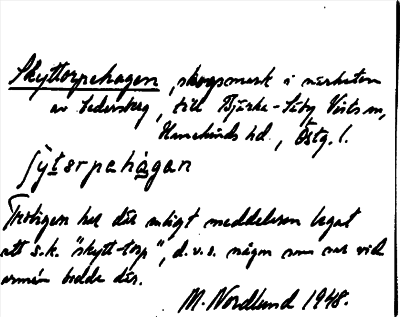 Skyttorpehagen, skogsmark i närheten
av Cedersberg, till Bjärka-Säby Vists sn,
Hanekinds hd., Östg. l.
ʃỳtərpehågan
Troligen har där enligt meddelaren legat
ett s.k. "skytt-torp", d.v.s. någon som var vid
armén bodde där.
M. Nordlund 1948.